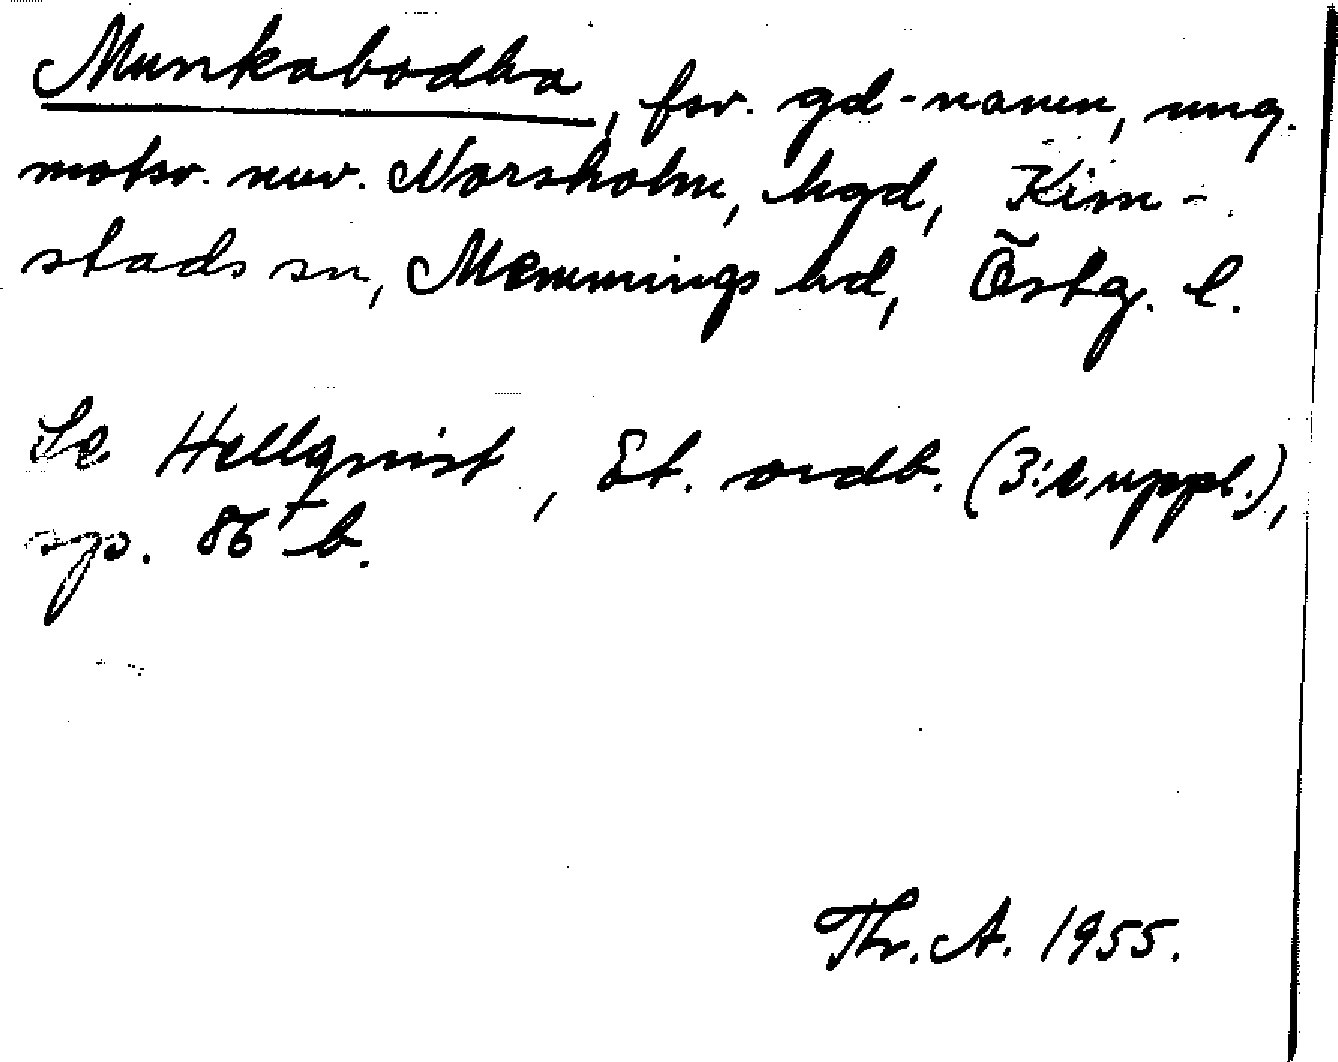 Munkabodha, fsv. gd-namn, ung.
motsv. nuv. Norsholm, hgd, Kim-
stads sn, Memmings hd, Östg. l.
Se Hellquist, Et. ordb. (3:e uppl.),
sp. 86 b.
Thr. A. 1955.